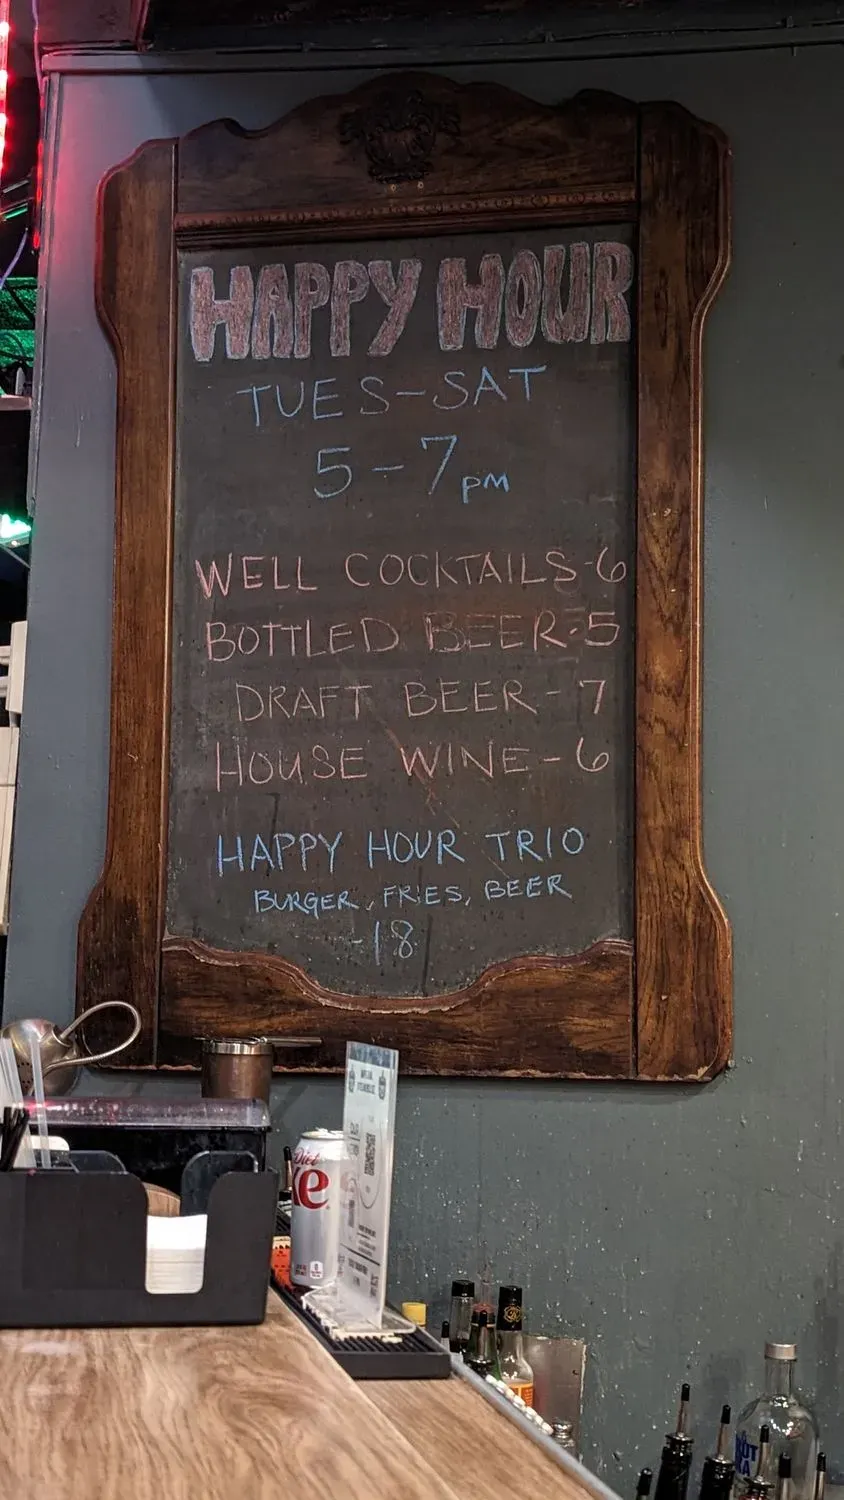 HAPPY HOUR
TUES-SAT
5-7pm
WELL COCKTAILS-6
BOTTLED BEER-5
DRAFT BEER-7
HOUSE WINE-6
HAPPY HOUR TRIO
BURGER, FRIES, BEER
-18
Diet
ke